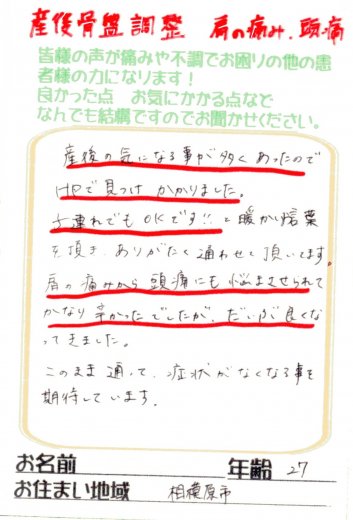 産後骨盤調整 肩の痛み、頭痛
皆様の声が痛みや不調でお困りの他の患
者様の力になります！
良かった点　お気にかかる点など
なんでも結構ですのでお聞かせください。
産後の気になる事が多くあったので
HPで見つけかかりました。
子連れでもOKです!! と暖かい言葉
を頂き、ありがたく通わせて頂いてます。
肩の痛みから頭痛にも悩まさせられて
かなり辛かったでしたが、だいぶ良くな
ってきました。
このまま通って、症状がなくなる事を
期待しています。
お名前　年齢 27
お住まい地域 相模原市